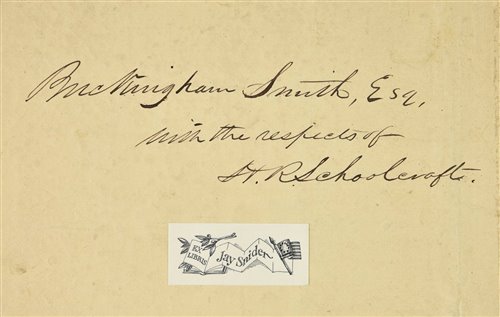 Buckingham Smith, Esq.
with the respects of
H. R. Schoolcraft.
EX
LIBRIS
Jay Snider